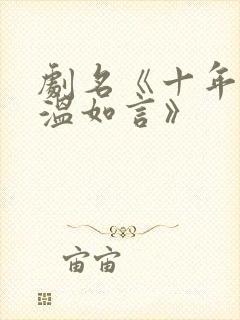 劇名《十年
溫如言》
宙宙